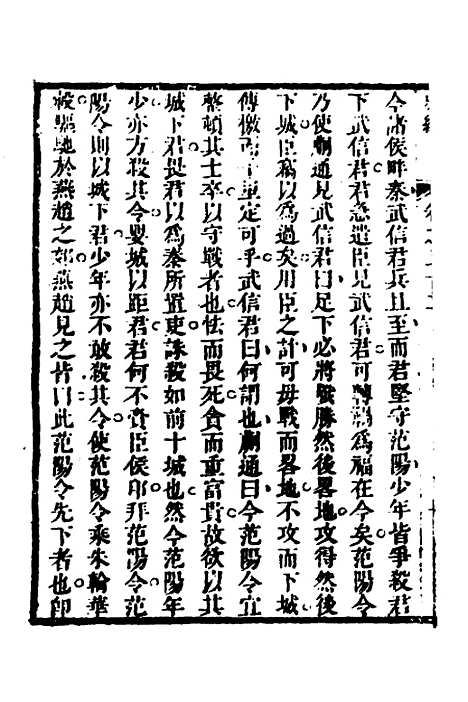 今諸侯畔秦武信君兵且至而君堅守范陽少年皆爭殺君
下武信君君急遣臣見武信君可轉禍爲福在今矣范陽令
乃使蒯通見武信君曰足下必將戰勝然後畧地攻得然後
下城臣竊以爲過矣用臣之計可毋戰而畧地不攻而下城
傳檄而千里定可乎武信君曰何謂也蒯通曰今范陽令宜
整頓其士卒以守戰者也怯而畏死貪而重富貴故欲以其
城下君畏君以爲秦所置吏誅殺如前十城也然今范陽年
少亦方殺其令嬰城以距君君何不賫臣侯印拜范陽令范
陽令則以城下君少年亦不敢殺其令使范陽令乘朱輪華
轂驅馳於燕趙之郊燕趙見之皆曰此范陽令先下者也卽